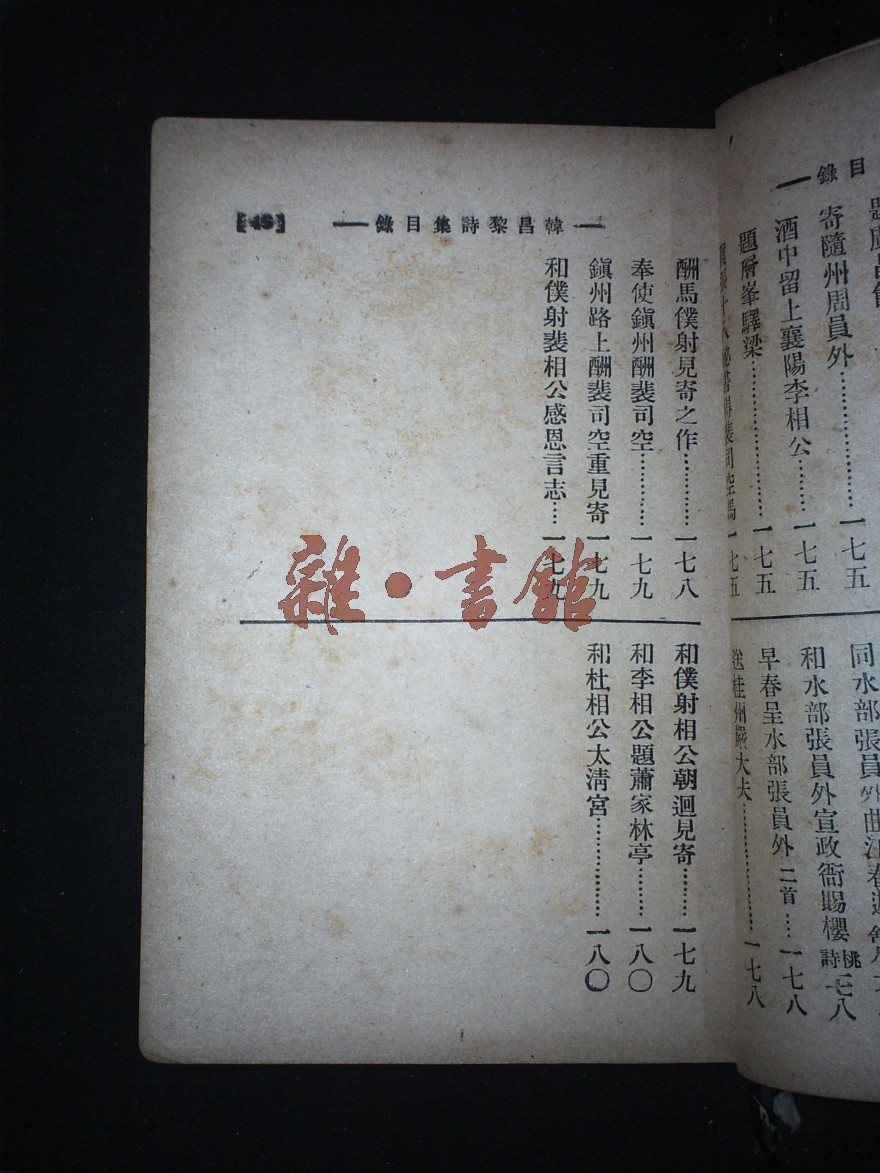 目錄
寄隨州周員外…………一七五
酒中留上襄陽李相公………一七五
題層峯驛梁………………一七五
同水部張員外曲江春遊
和水部張員外宣政衙賜櫻桃詩一七八
早春呈水部張員外二首……一七八
送桂州嚴大夫………………一七八
韓昌黎詩集目錄
酬馬僕射見寄之作…………一七八
奉使鎭州酬裴司空…………一七九
鎭州路上酬裴司空重見寄一七九
和僕射裴相公感恩言志……一七九
和僕射相公朝迴見寄………一七九
和李相公題蕭家林亭………一八〇
和杜相公太淸宮………………一八〇
雜·書館